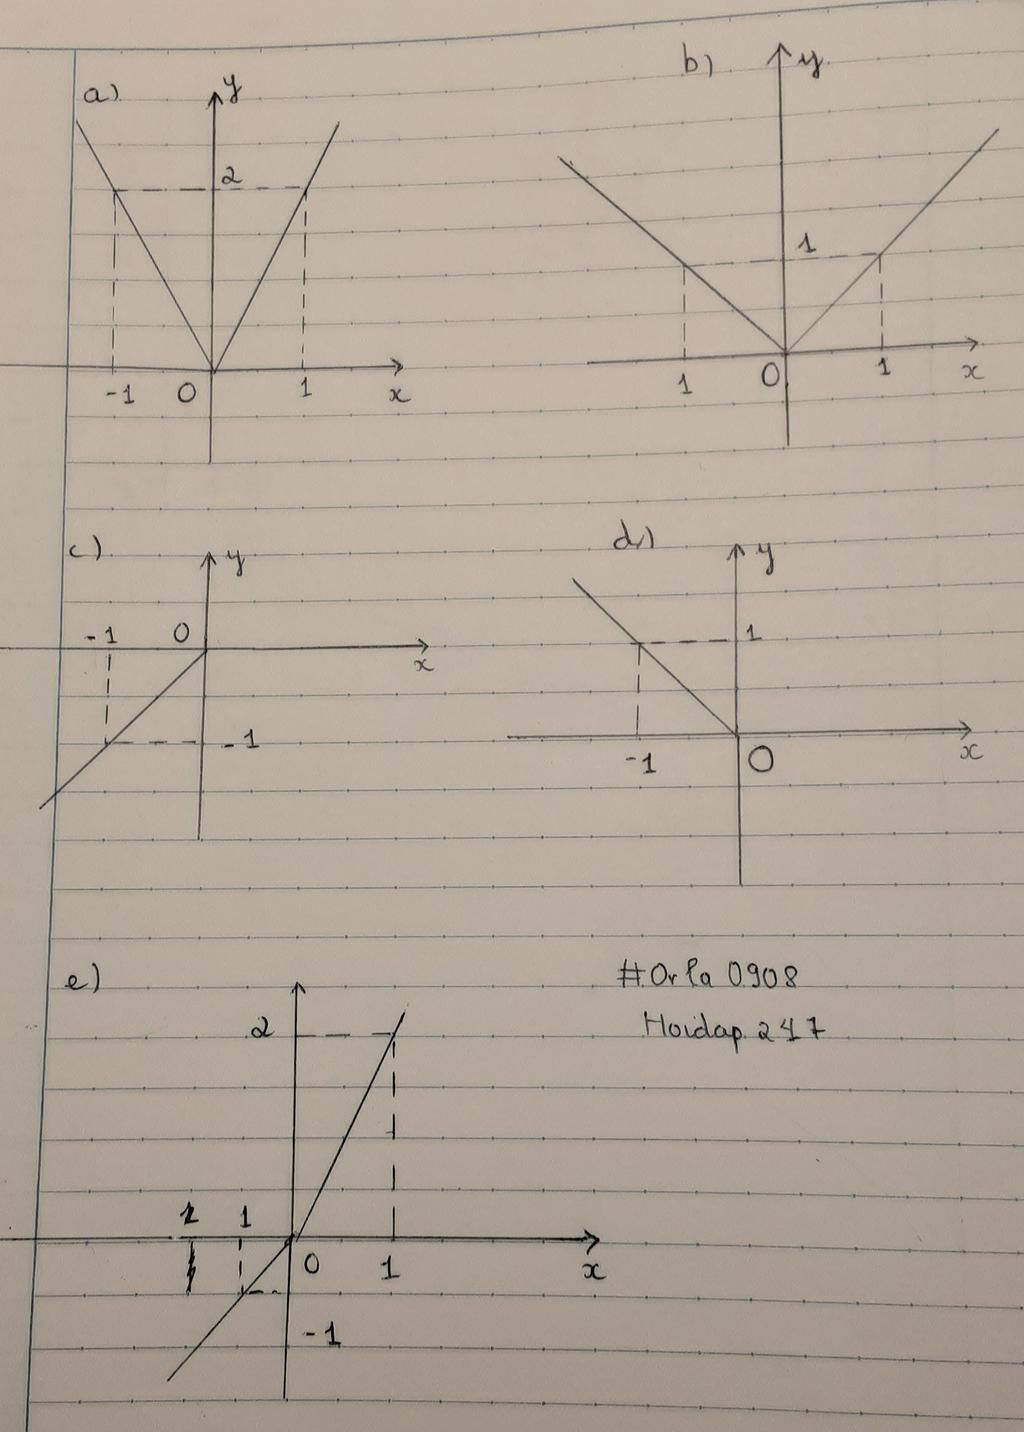 a)
y
2
-1 0 1 x
b)
y
1
1 0 1 x
c)
y
-1 0
x
-1
d)
y
1
-1 0 x
e)
#Orla 0908
Hoidap 247
2
1
0 1 x
-1